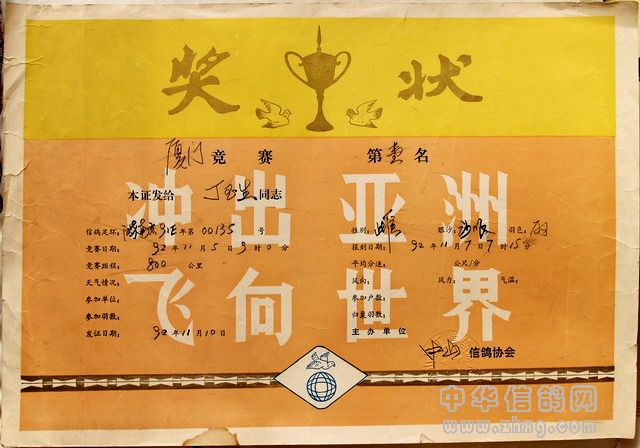 奖 状
厦门 竞赛 第 壹 名
本证发给 丁 同志
冲出亚洲
信鸽足环: 91年第 00135 号 性别: 雌 眼沙: 羽色:
竞赛日期: 92年11月5日9时0分 报到日期: 92年11月7日7时15分
竞赛距程: 800 公里 平均分速: 公尺/分
天气情况: 风向: 风力: 气温:
飞向世界
参加单位: 参加户数:
参加羽数: 归巢羽数:
发证日期: 92年11月10日 主办单位
中山 信鸽协会
中华信鸽网
www.zhxg.com